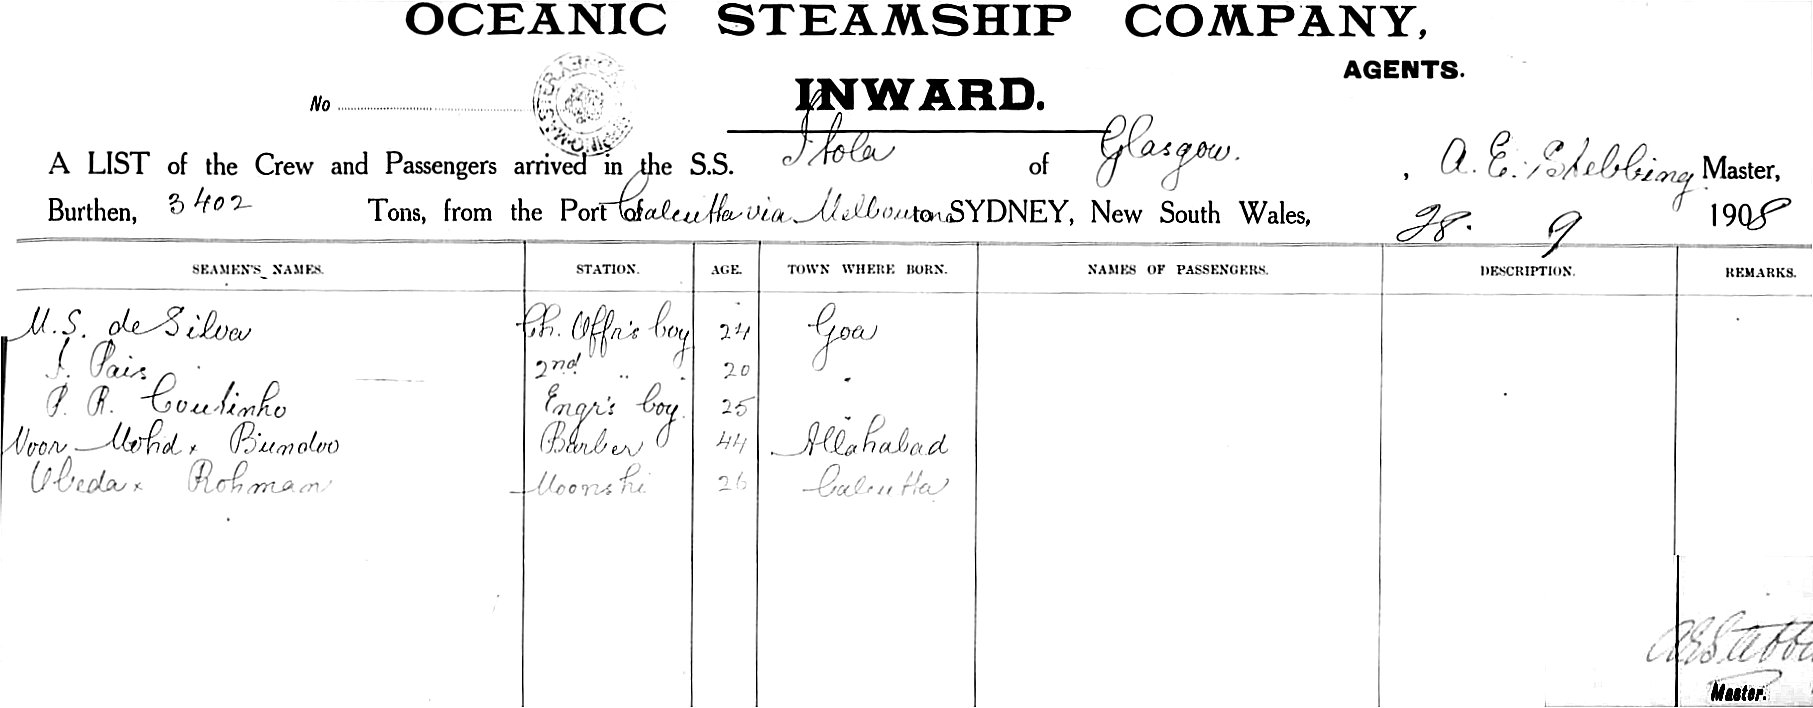 OCEANIC STEAMSHIP COMPANY,
AGENTS.
INWARD.
No
A LIST of the Crew and Passengers arrived in the S.S. Itola of Glasgow. , A. E. Stebbing Master,
Burthen, 3402 Tons, from the Port of Calcutta via Melbourne to SYDNEY, New South Wales, 28. 9 1908
SEAMEN'S NAMES. STATION. AGE. TOWN WHERE BORN. NAMES OF PASSENGERS. DESCRIPTION. REMARKS.
M. S. de Silva Ch. Offr's boy 24 Goa
J. Pais 2nd " " 20 "
P. R. Coutinho Engr's boy. 25 "
Noor Mohd x Bundoo Barber 44 Allahabad
Ubeda x Rohman Moonshi 26 Calcutta
Master.